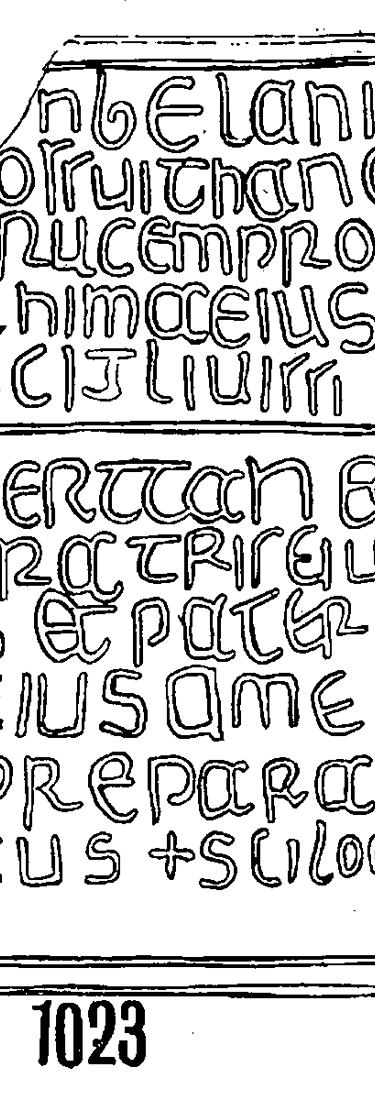 nbelani
ossuithanc
rucempro
nimaeius
citliuissi
erttan e
ratriseiu
s et pater
eius ame
prepara
us +sciloc
1023